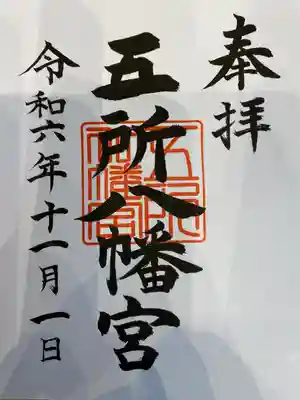 奉拝
五所八幡宮
令和六年十一月一日